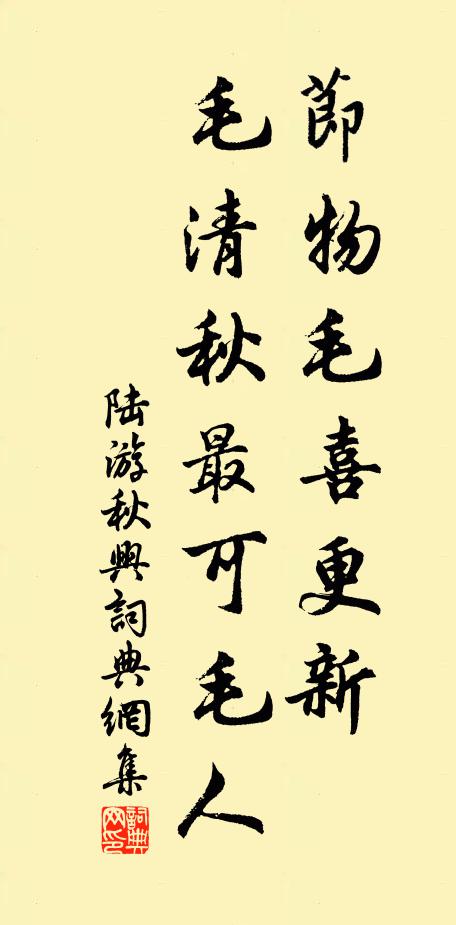 節物毛喜更新
毛清秋最可毛人
陸游秋興詞典網集
詞典網印